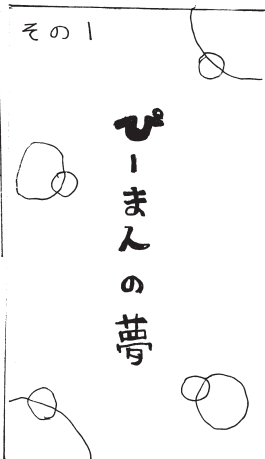 その1
ぴーまんの夢